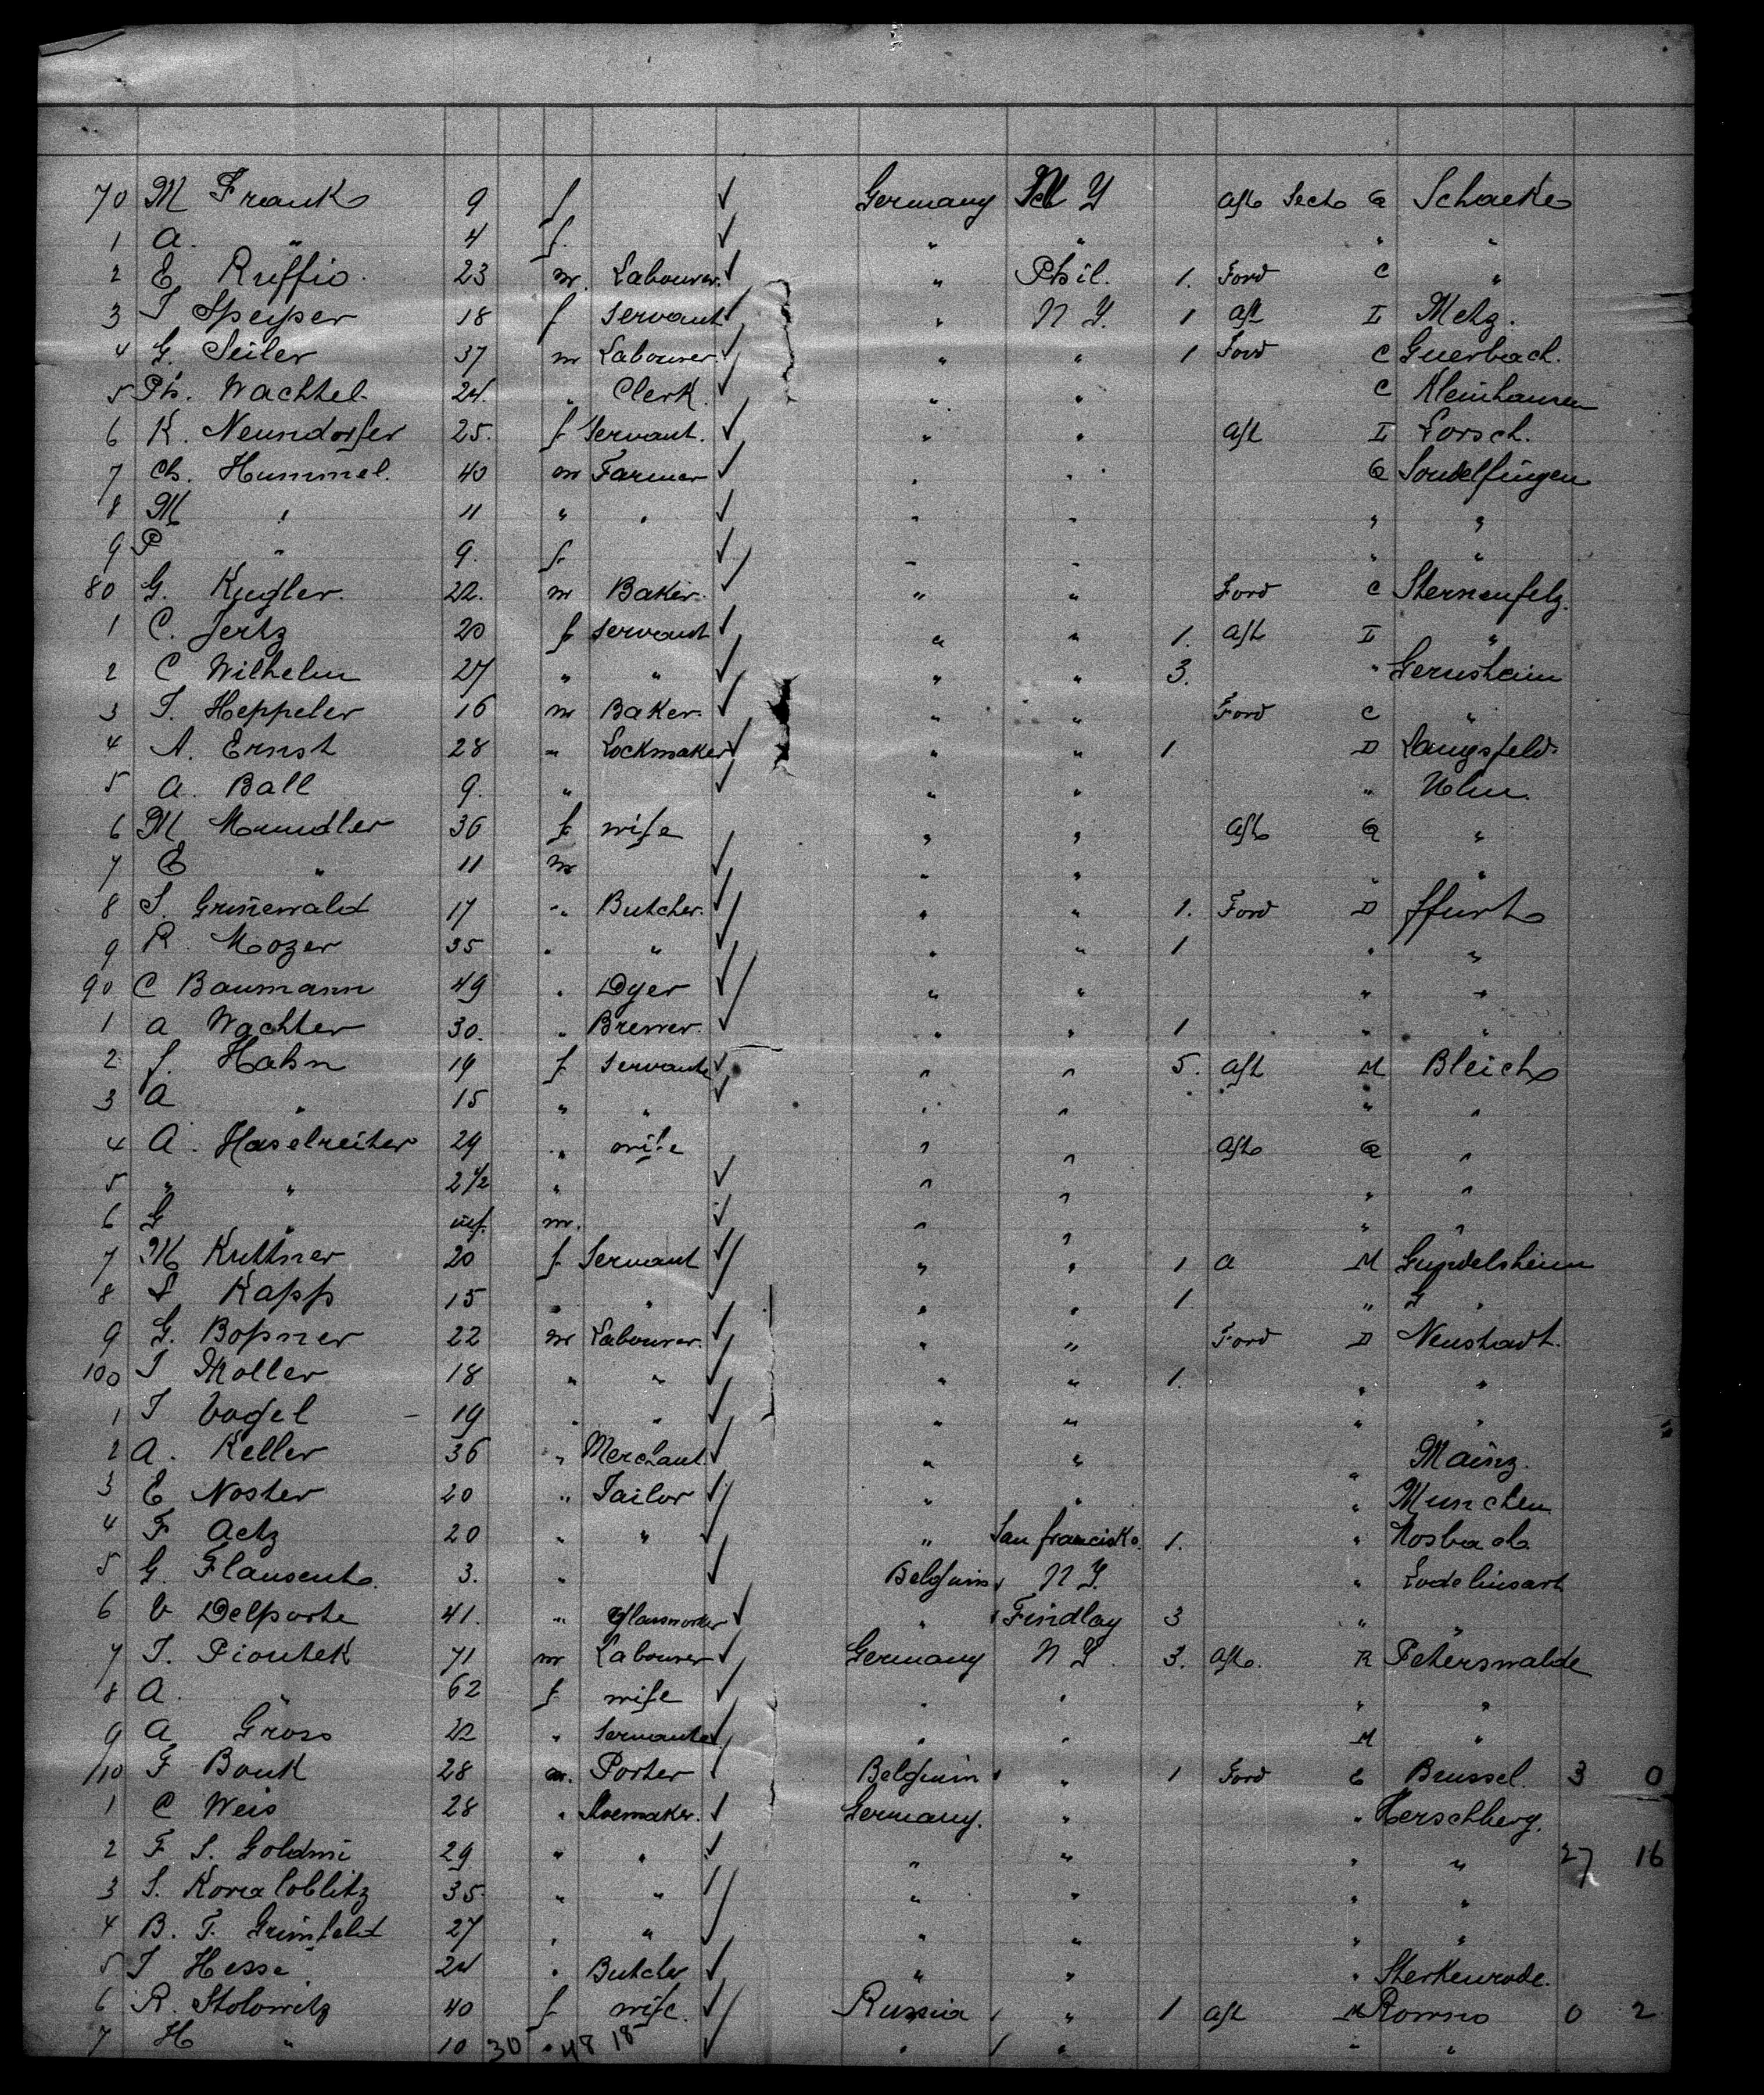 70 M Frank 9 f ✓ Germany N Y Aft Sect Q Schacke
1 A. " 4 f. ✓ " " " "
2 E Ruffio. 23 m. Labourer. ✓ " Phil. 1. Ford C "
3 J Speyser 18 f Servant ✓ " N Y. 1 Aft I Metz.
4 G. Seiler 37 m Labourer. ✓ " " 1 Ford C Guerbach.
5 Ph. Wachtel 24. " Clerk. ✓ " " C Kleinhausen
6 K. Neundorfer 25. f Servant. ✓ " " Aft I Lorsch.
7 Ch. Hummel. 40 m Farmer ✓ " " Q Sondelfingen
8 M " 11 " " ✓ " " " "
9 P " 9. f ✓ " " " "
80 G. Kugler. 22. m Baker. ✓ " " Ford C Sternenfelz.
1 C. Jertz 20 f Servant ✓ " " 1. Aft I "
2 C Wilhelm 27 " " ✓ " " 3. " Gernsheim
3 J. Heppeler 16 m Baker. ✓ " " Ford C "
4 A. Ernst 28 " Lockmaker ✓ " " 1. D Langsfeld
5 A. Ball 9. " ✓ " " "
6 M Mundler 36 f wife " " Aft Q "
7 E " 11 m ✓ " " " "
8 S. Grünewald 17 " Butcher. ✓ " " 1. Ford D ffurt
9 R. Mozer 35 " " ✓ " " 1 " "
90 C Baumann 49 " Dyer ✓ " " " "
1 A Wachter 30. " Brewer. ✓ " " 1 " "
2 J. Hahn 19 f Servant ✓ " " 5. Aft M Bleich
3 A " 15 " " ✓ " " " "
4 A. Haselreiter 29 " wife " " Aft Q "
5 " " 2 1/2 " ✓ " " " "
6 G " inf. m. ✓ " " " "
7 M Kuttner 20 f Servant ✓ " " 1 A M Gundelsheim
8 Kapp 15 " " ✓ " " 1 " G "
9 G. Bopner 22 m Labourer. ✓ " " Ford D Neustadt.
100 J Moller 18 " " ✓ " " 1. " "
1 J Vogel 19 " " ✓ " " " "
2 A. Keller 36 " Merchant. ✓ " " " Mainz.
3 E Noster 20 " Tailor ✓ " " " Munchen
4 F Aetz 20 " " ✓ " San francisko. 1. " Mosbach
5 G. Flausent. 3. " ✓ Belguim N Y. " Lodelinsart
6 V Delporte 41. " Glassworker ✓ " Findlay 3 " "
7 J. Piontek 71 m Labourer ✓ Germany N Y. 3. Aft. R Peterswalde
8 A. " 62 f wife ✓ " " " "
9 A Gross 22 " Servant ✓ " " M "
110 F Bouk 28 m. Porter ✓ Belguim " 1 Ford C Brussel. 3 0
1 C Weis 28 " Shoemaker. ✓ Germany. " " Herschberg.
2 F S. Goldmi 29 " " ✓ " " " " 27 16
3 S. 35. " " ✓ " " " "
4 B. F. Grünfeld 27 " " ✓ " " " "
5 J Hesse 24 " Butcher ✓ " " " Sterkenrode.
6 R. Stolowitz 40 f wife. ✓ Russia " 1 Aft M Rowno 0 2
7 H " 10 30 " 48 18 ✓ " " " "